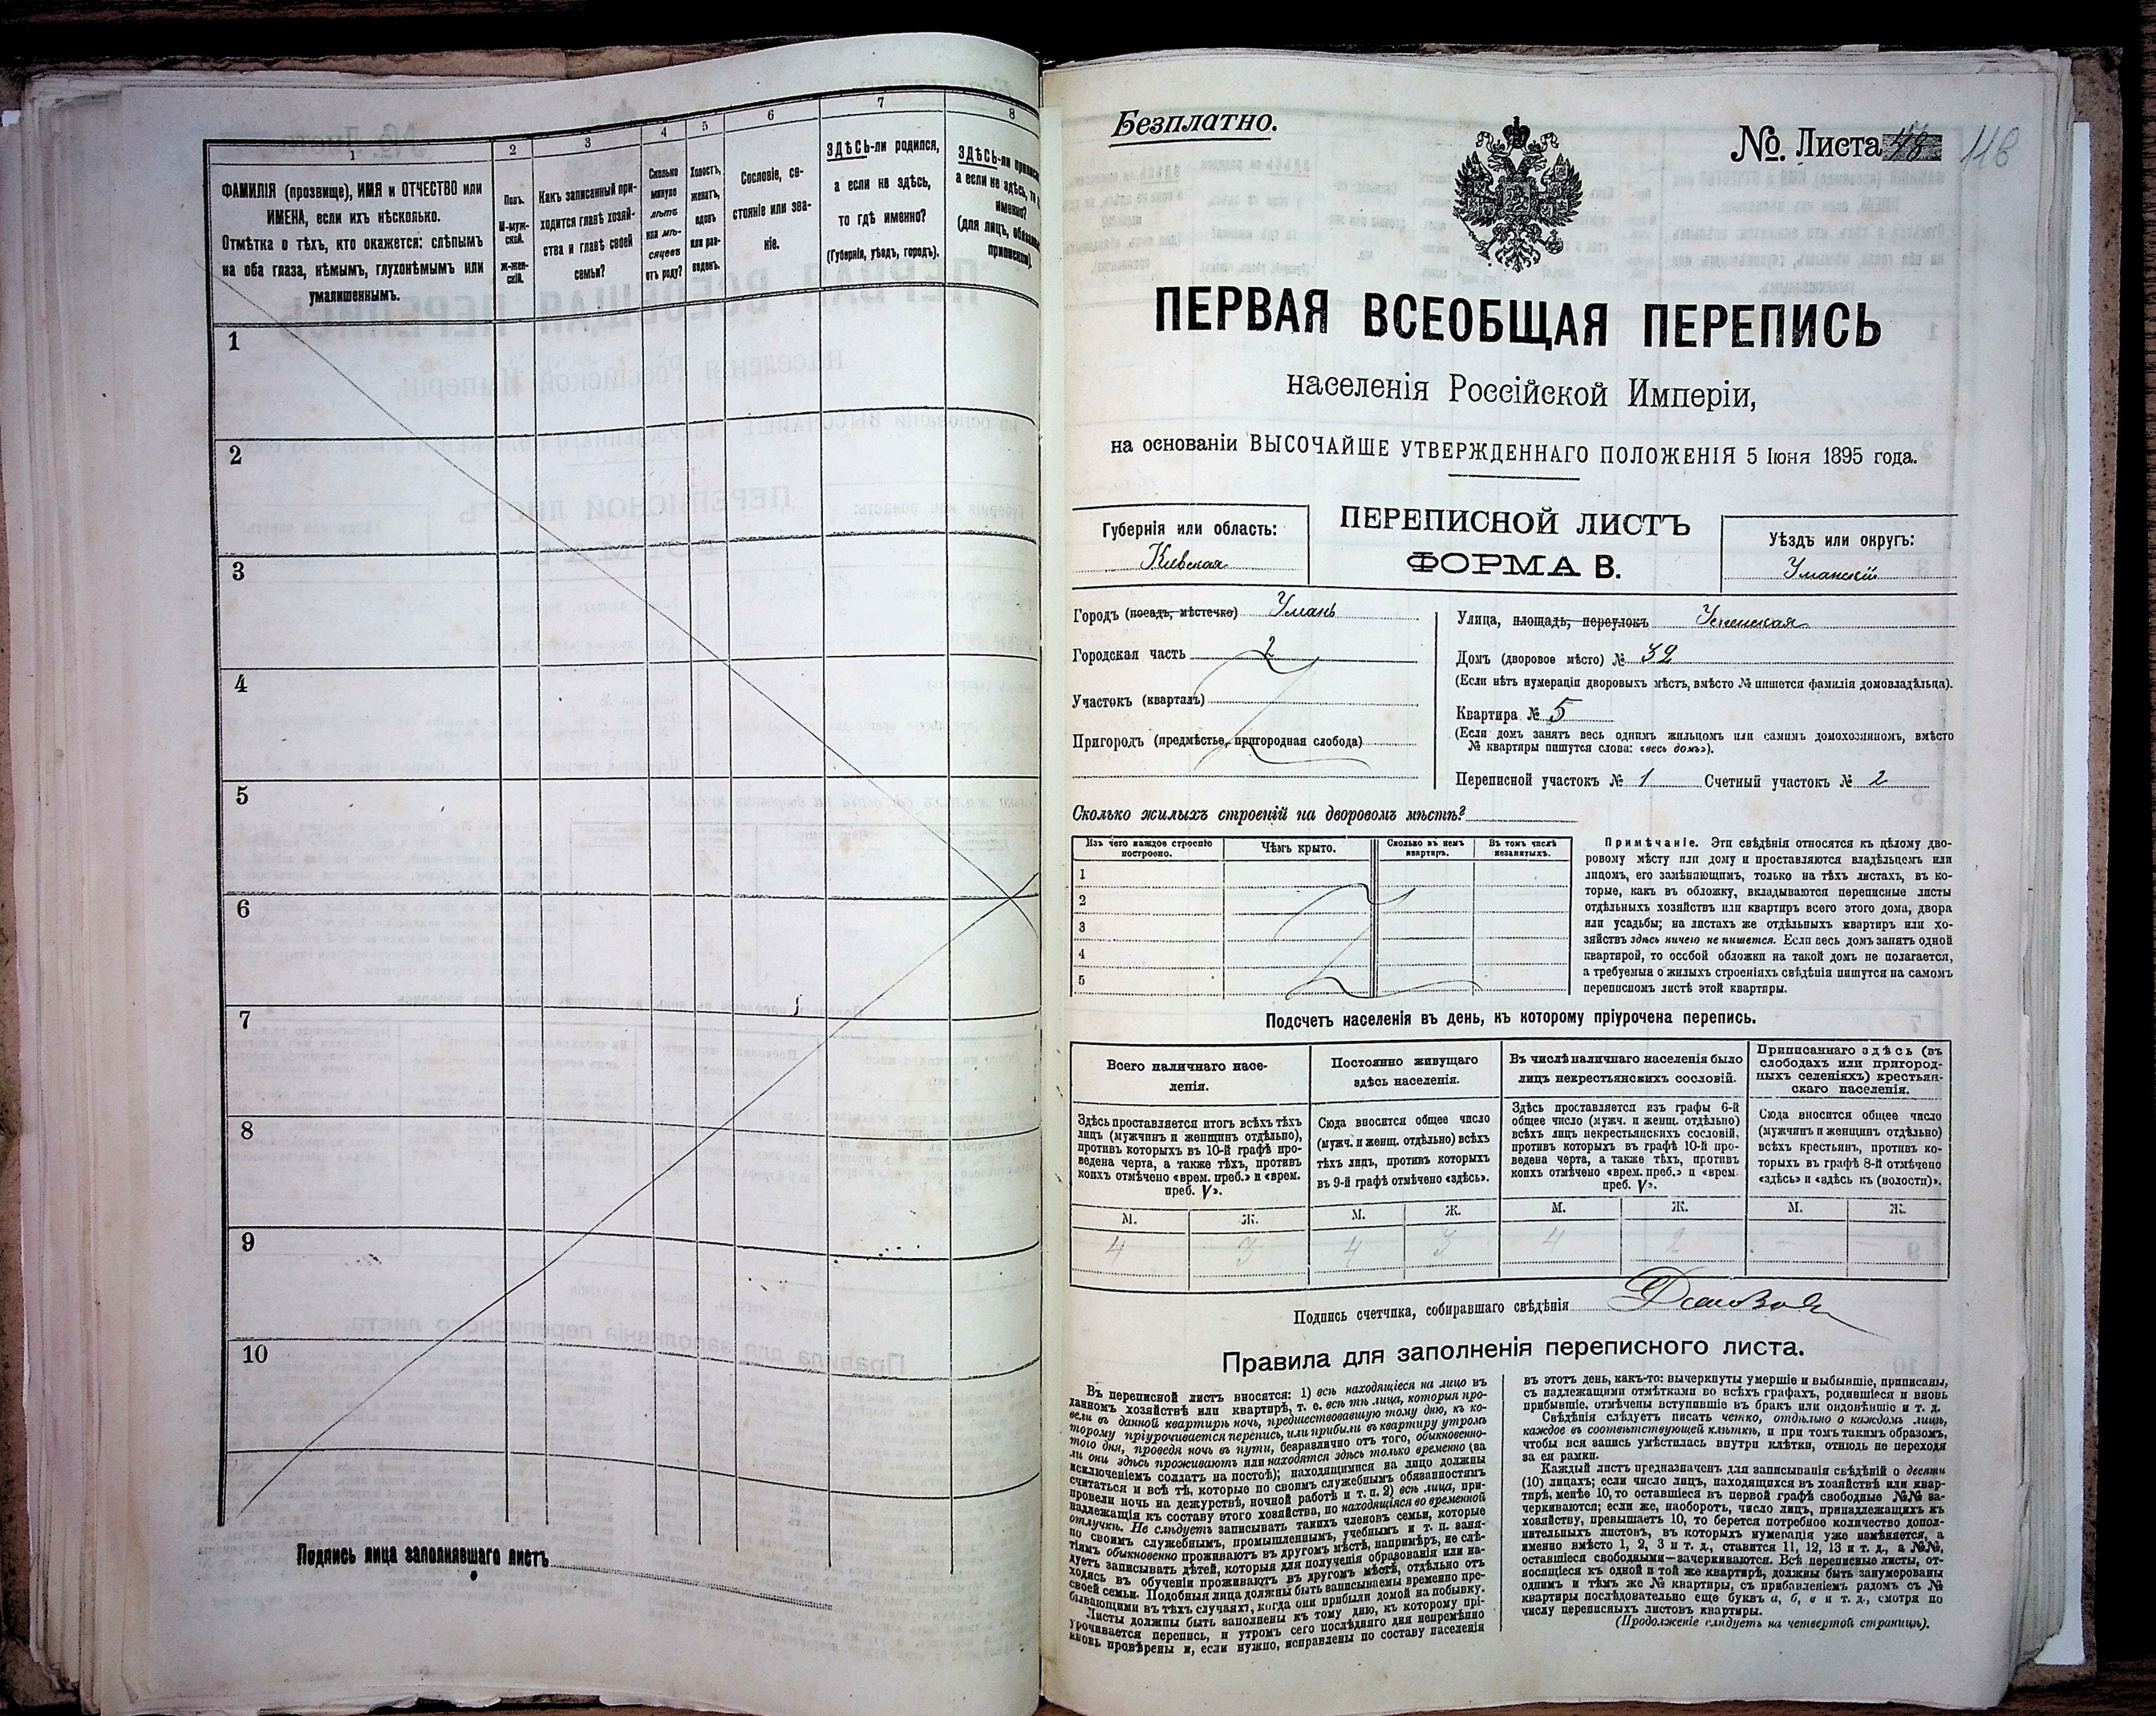 1
ФАМИЛІЯ (прозвище), ИМЯ и ОТЧЕСТВО или
ИМЕНА, если ихъ нѣсколько.
Отмѣтка о тѣхъ, кто окажется: слѣпымъ
на оба глаза, нѣмымъ, глухонѣмымъ или
умалишеннымъ.
2
Полъ.
М-муж-
ской.
Ж-жен-
скій.
3
Какъ записанный при-
ходится главѣ хозяй-
ства и главѣ своей
семьи?
4
Сколько
минуло
лѣтъ
или мѣ-
сяцевъ
отъ роду?
5
Холостъ,
женатъ,
вдовъ
или раз-
веденъ.
6
Сословіе, со-
стояніе или зва-
ніе.
7
ЗДѢСЬ-ли родился,
а если не здѣсь,
то гдѣ именно?
(Губернія, уѣздъ, городъ).
8
ЗДѢСЬ-ли
а если не здѣсь, то
именно?
(для лицъ,
1
2
3
4
5
6
7
8
9
10
Подпись лица заполнявшаго листъ
Безплатно.
№. Листа 48 116
ПЕРВАЯ ВСЕОБЩАЯ ПЕРЕПИСЬ
населенія Россійской Имперіи,
на основаніи ВЫСОЧАЙШЕ УТВЕРЖДЕННАГО ПОЛОЖЕНІЯ 5 Іюня 1895 года.
Губернія или область:
Кіевская
ПЕРЕПИСНОЙ ЛИСТЪ
ФОРМА В.
Уѣздъ или округъ:
Уманскій
Городъ (посадъ, мѣстечко) Умань
Городская часть 2
Участокъ (кварталъ)
Пригородъ (предмѣстье, пригородная слобода)
Улица, площадь, переулокъ Успенская
Домъ (дворовое мѣсто) № 32
(Если нѣтъ нумераціи дворовыхъ мѣстъ, вмѣсто № пишется фамилія домовладѣльца).
Квартира № 5
(Если домъ занятъ весь однимъ жильцомъ или самимъ домохозяиномъ, вмѣсто
№ квартиры пишутся слова: «весь домъ»).
Переписной участокъ № 1 Счетный участокъ № 2
Сколько жилыхъ строеній на дворовомъ мѣстѣ?
Изъ чего каждое строеніе
построено.
Чѣмъ крыто.
Сколько въ немъ
квартиръ.
Въ томъ числѣ
незанятыхъ.
1
2
3
4
5
Примѣчаніе. Эти свѣдѣнія относятся къ цѣлому дво-
ровому мѣсту или дому и проставляются владѣльцемъ или
лицомъ, его замѣняющимъ, только на тѣхъ листахъ, въ ко-
торые, какъ въ обложку, вкладываются переписные листы
отдѣльныхъ хозяйствъ или квартиръ всего этого дома, двора
или усадьбы; на листахъ же отдѣльныхъ квартиръ или хо-
зяйствъ здѣсь ничего не пишется. Если весь домъ занятъ одной
квартирой, то особой обложки на такой домъ не полагается,
а требуемыя о жилыхъ строеніяхъ свѣдѣнія пишутся на самомъ
переписномъ листѣ этой квартиры.
Подсчетъ населенія въ день, къ которому пріурочена перепись.
Всего наличнаго насе-
ленія.
Здѣсь проставляется итогъ всѣхъ тѣхъ
лицъ (мужчинъ и женщинъ отдѣльно),
противъ которыхъ въ 10-й графѣ про-
ведена черта, а также тѣхъ, противъ
коихъ отмѣчено «врем. преб.» и «врем.
преб. V».
Постоянно живущаго
здѣсь населенія.
Сюда вносится общее число
(мужч. и женщ. отдѣльно) всѣхъ
тѣхъ лицъ, противъ которыхъ
въ 9-й графѣ отмѣчено «здѣсь».
Въ числѣ наличнаго населенія было
лицъ некрестьянскихъ сословій.
Здѣсь проставляется изъ графы 6-й
общее число (мужч. и женщ. отдѣльно)
всѣхъ лицъ некрестьянскихъ сословій,
противъ которыхъ въ графѣ 10-й про-
ведена черта, а также тѣхъ, противъ
коихъ отмѣчено «врем. преб.» и «врем.
преб. V».
Приписаннаго здѣсь (въ
слободахъ или пригород-
ныхъ селеніяхъ) крестьян-
скаго населенія.
Сюда вносится общее число
(мужчинъ и женщинъ отдѣльно)
всѣхъ крестьянъ, противъ ко-
торыхъ въ графѣ 8-й отмѣчено
«здѣсь» и «здѣсь къ (волости)».
М. Ж. М. Ж. М. Ж. М. Ж.
4 3 4 3 4 2 -
Подпись счетчика, собиравшаго свѣдѣнія
Правила для заполненія переписного листа.
Въ переписной листъ вносятся: 1) всѣ находящіеся на лицо въ
данномъ хозяйствѣ или квартирѣ, т. е. всѣ тѣ лица, которыя про-
вели въ данной квартирѣ ночь, предшествовавшую тому дню, къ ко-
торому пріурочивается перепись, или прибыли въ квартиру утромъ
того дня, проведя ночь въ пути, безразлично отъ того, обыкновенно-
ли они здѣсь проживаютъ или находятся здѣсь только временно (за
исключеніемъ солдатъ на постоѣ); находящимися на лицо должны
считаться и всѣ тѣ, которые по своимъ служебнымъ обязанностямъ
провели ночь на дежурствѣ, ночной работѣ и т. п. 2) всѣ лица, при-
надлежащія къ составу этого хозяйства, но находящіяся во временной
отлучкѣ. Не слѣдуетъ записывать такихъ членовъ семьи, которые
по своимъ служебнымъ, промышленнымъ, учебнымъ и т. п. заня-
тіямъ обыкновенно проживаютъ въ другомъ мѣстѣ, напримѣръ, не слѣ-
дуетъ записывать дѣтей, которыя для полученія образованія или на-
ходясь въ обученіи проживаютъ въ другомъ мѣстѣ, отдѣльно отъ
своей семьи. Подобныя лица должны быть записываемы временно пре-
бывающими въ тѣхъ случаяхъ, когда они прибыли домой на побывку.
Листы должны быть заполнены къ тому дню, къ которому прі-
урочивается перепись, и утромъ сего послѣдняго дня непремѣнно
вновь провѣрены и, если нужно, исправлены по составу населенія
въ этотъ день, какъ-то: вычеркнуты умершіе и выбывшіе, приписаны,
съ надлежащими отмѣтками во всѣхъ графахъ, родившіеся и вновь
прибывшіе, отмѣчены вступившіе въ бракъ или овдовѣвшіе и т. д.
Свѣдѣнія слѣдуетъ писать четко, отдѣльно о каждомъ лицѣ,
каждое въ соотвѣтствующей клѣткѣ, и при томъ такимъ образомъ,
чтобы вся запись умѣстилась внутри клѣтки, отнюдь не переходя
за ея рамки.
Каждый листъ предназначенъ для записыванія свѣдѣній о десяти
(10) лицахъ; если число лицъ, находящихся въ хозяйствѣ или квар-
тирѣ, менѣе 10, то оставшіеся въ первой графѣ свободные №№ за-
черкиваются; если же, наоборотъ, число лицъ, принадлежащихъ къ
хозяйству, превышаетъ 10, то берется потребное количество допол-
нительныхъ листовъ, въ которыхъ нумерація уже измѣняется, а
именно вмѣсто 1, 2, 3 и т. д., ставится 11, 12, 13 и т. д., а №№,
оставшіеся свободными—зачеркиваются. Всѣ переписные листы, от-
носящіеся къ одной и той же квартирѣ, должны быть занумерованы
однимъ и тѣмъ же № квартиры, съ прибавленіемъ рядомъ съ №
квартиры послѣдовательно еще буквъ а, б, в и т. д., смотря по
числу переписныхъ листовъ квартиры.
(Продолженіе слѣдуетъ на четвертой страницѣ).